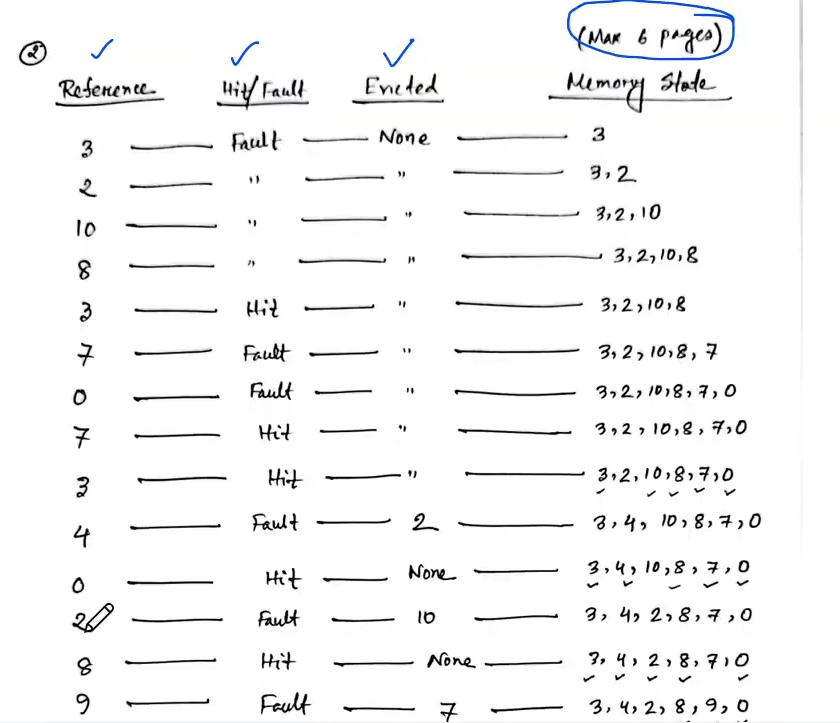 (Max 6 pages)
②
Reference Hit/Fault Evicted Memory State
3 Fault None 3
2 " " 3,2
10 " " 3,2,10
8 " " 3,2,10,8
3 Hit " 3,2,10,8
7 Fault " 3,2,10,8,7
0 Fault " 3,2,10,8,7,0
7 Hit " 3,2,10,8,7,0
3 Hit " 3,2,10,8,7,0
4 Fault 2 3,4,10,8,7,0
0 Hit None 3,4,10,8,7,0
2 Fault 10 3,4,2,8,7,0
8 Hit None 3,4,2,8,7,0
9 Fault 7 3,4,2,8,9,0